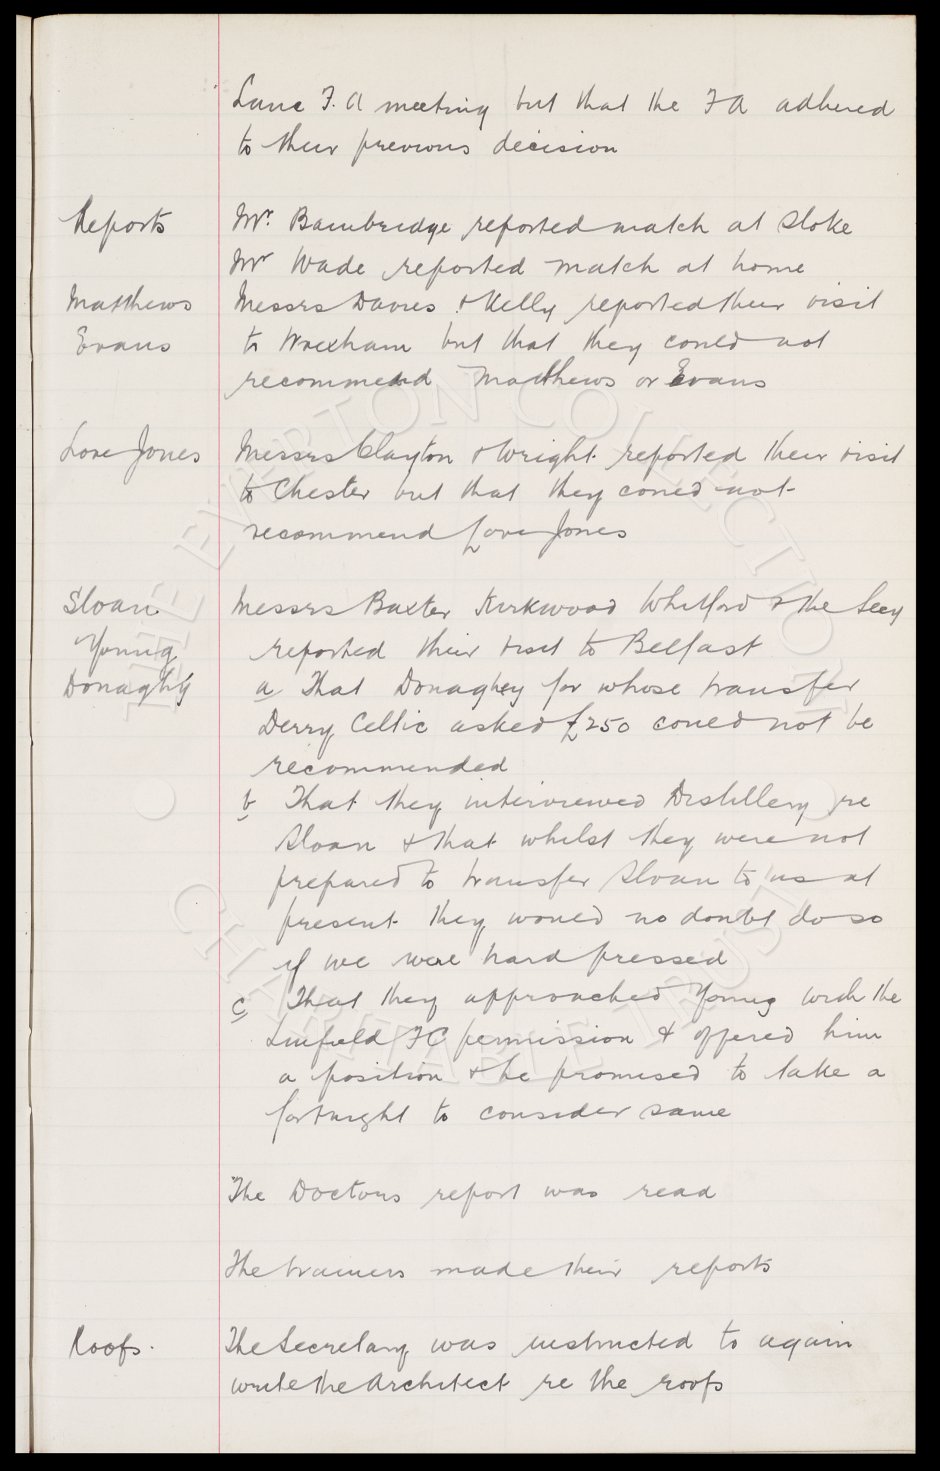 Lanc F. A meeting but that the F A adhered
to their previous decision
Reports
Mr. Bainbridge reported match at Stoke
Mr Wade reported match at home
Matthews
Evans
Messrs Davies & Kelly reported their visit
to Wrexham but that they could not
recommend Matthews or Evans
Love Jones
Messrs Clayton & Wright reported their visit
to Chester but that they could not
recommend Love Jones
Sloan
Young
Donaghy
Messrs Baxter Kirkwood Whitford & the Secy
reported their visit to Belfast
a That Donaghey for whose transfer
Derry Celtic asked £250 could not be
recommended
b That they interviewed Distillery re
Sloan & that whilst they were not
prepared to transfer Sloan to us at
present they would no doubt do so
if we were hard pressed
c That they approached Young with the
Linfield FC permission & offered him
a position & he promised to take a
fortnight to consider same
The Doctors report was read
The trainers made their reports
Roofs.
The Secretary was instructed to again
write the Architect re the roofs
THE EVERTON COLLECTION
CHARITABLE TRUST